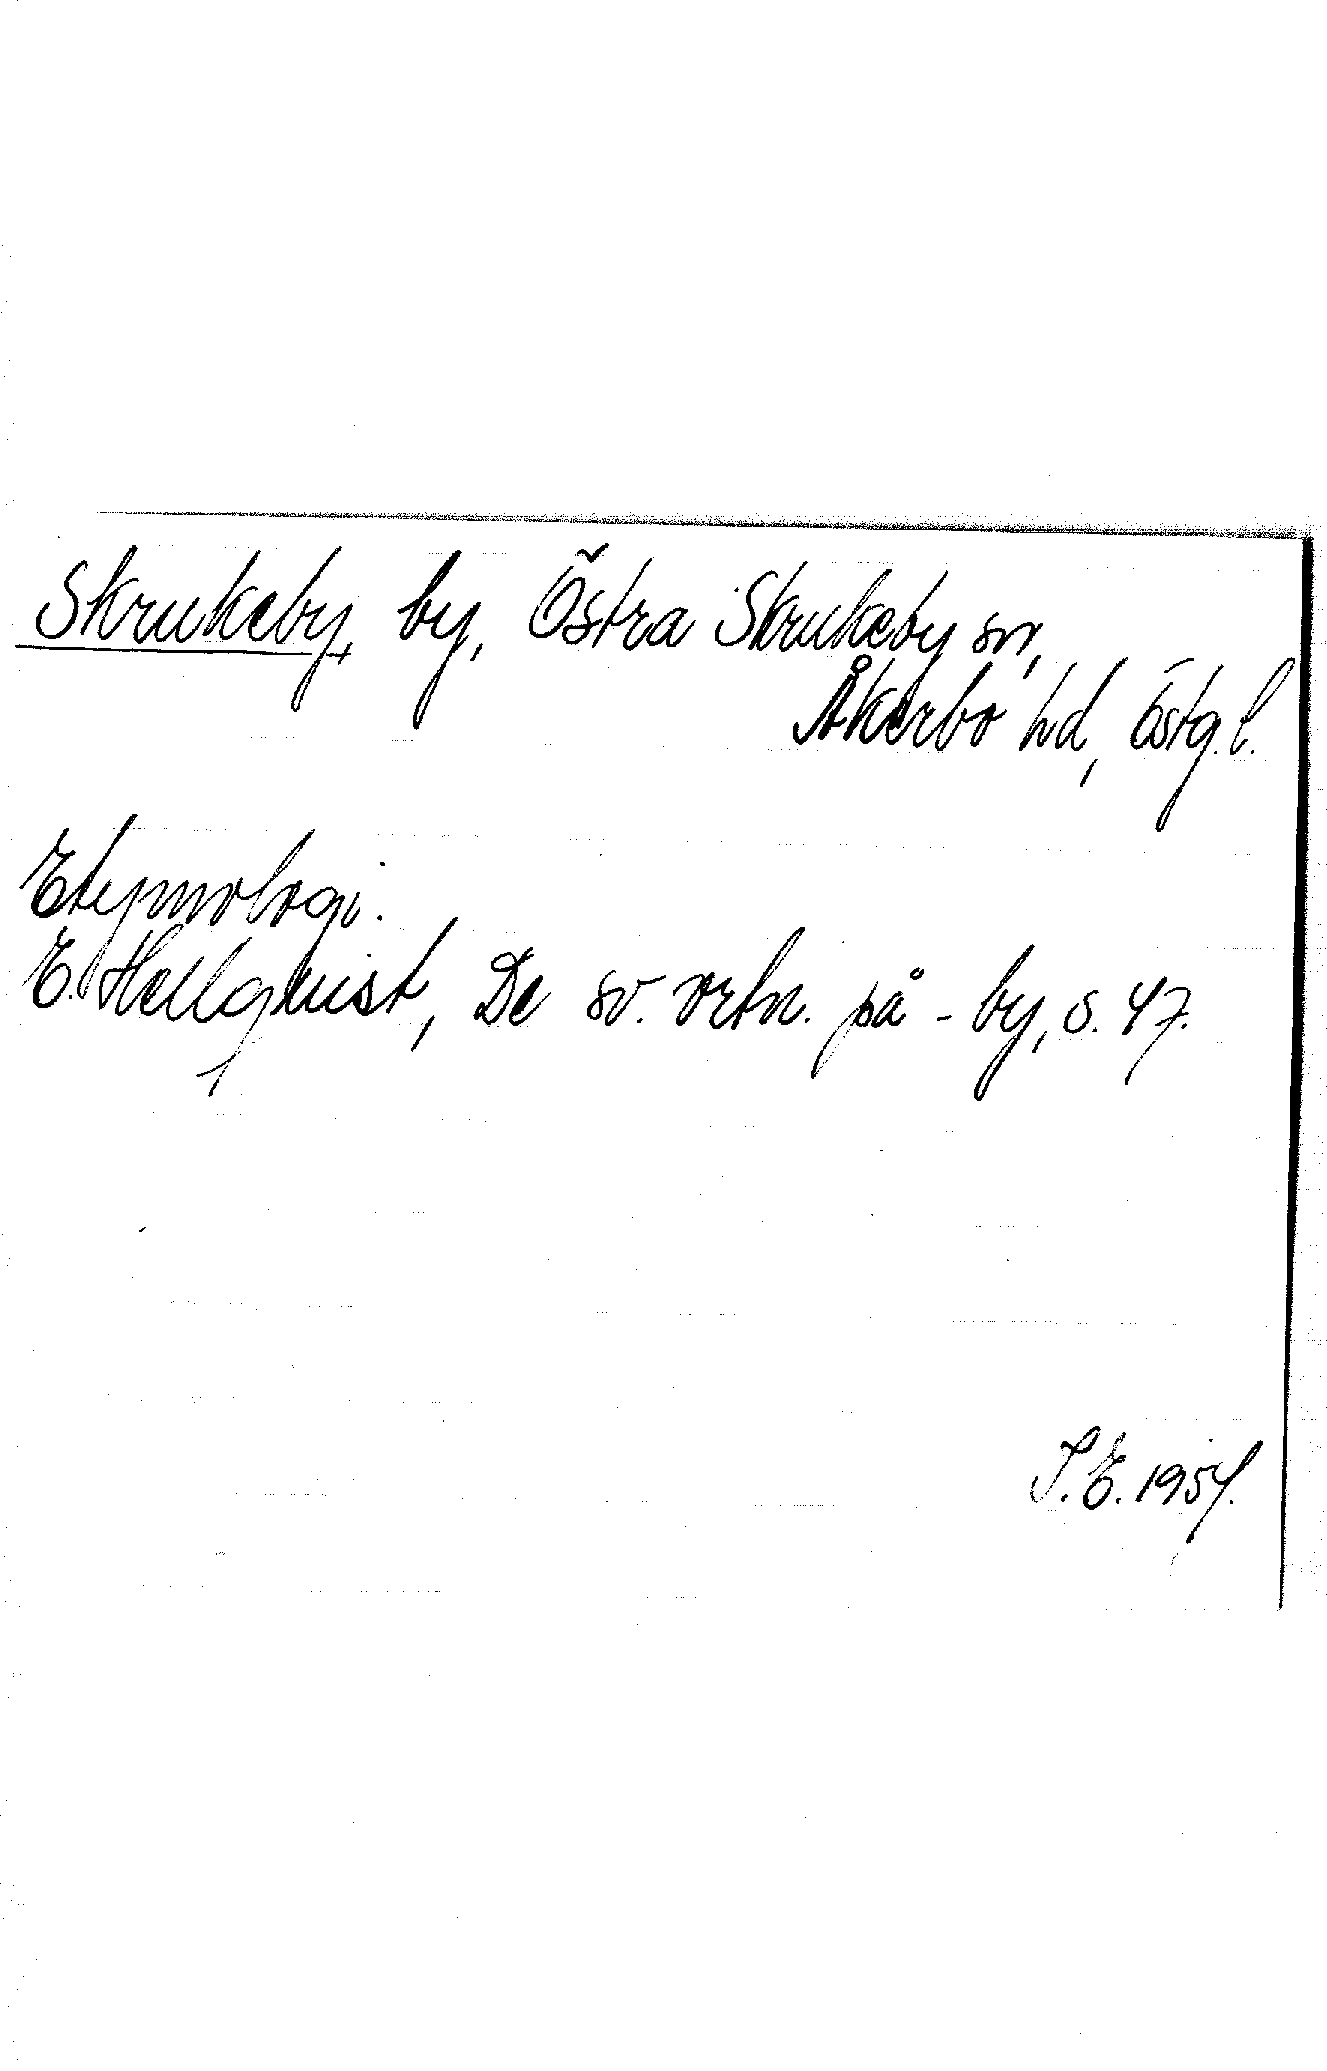 Skrukeby, by, Östra Skrukeby sn,
Åkerbo hd, Östg.l.
Etymologi.
E. Hellquist, De sv. ortn. på -by, s. 47.
S.E. 1954.